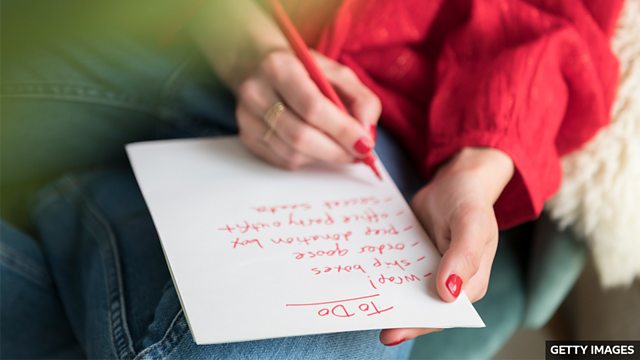 To Do
- Wrap!
- ship boxes
- order goose
- prep donation box
- office party outfit
- secret santa
GETTY IMAGES